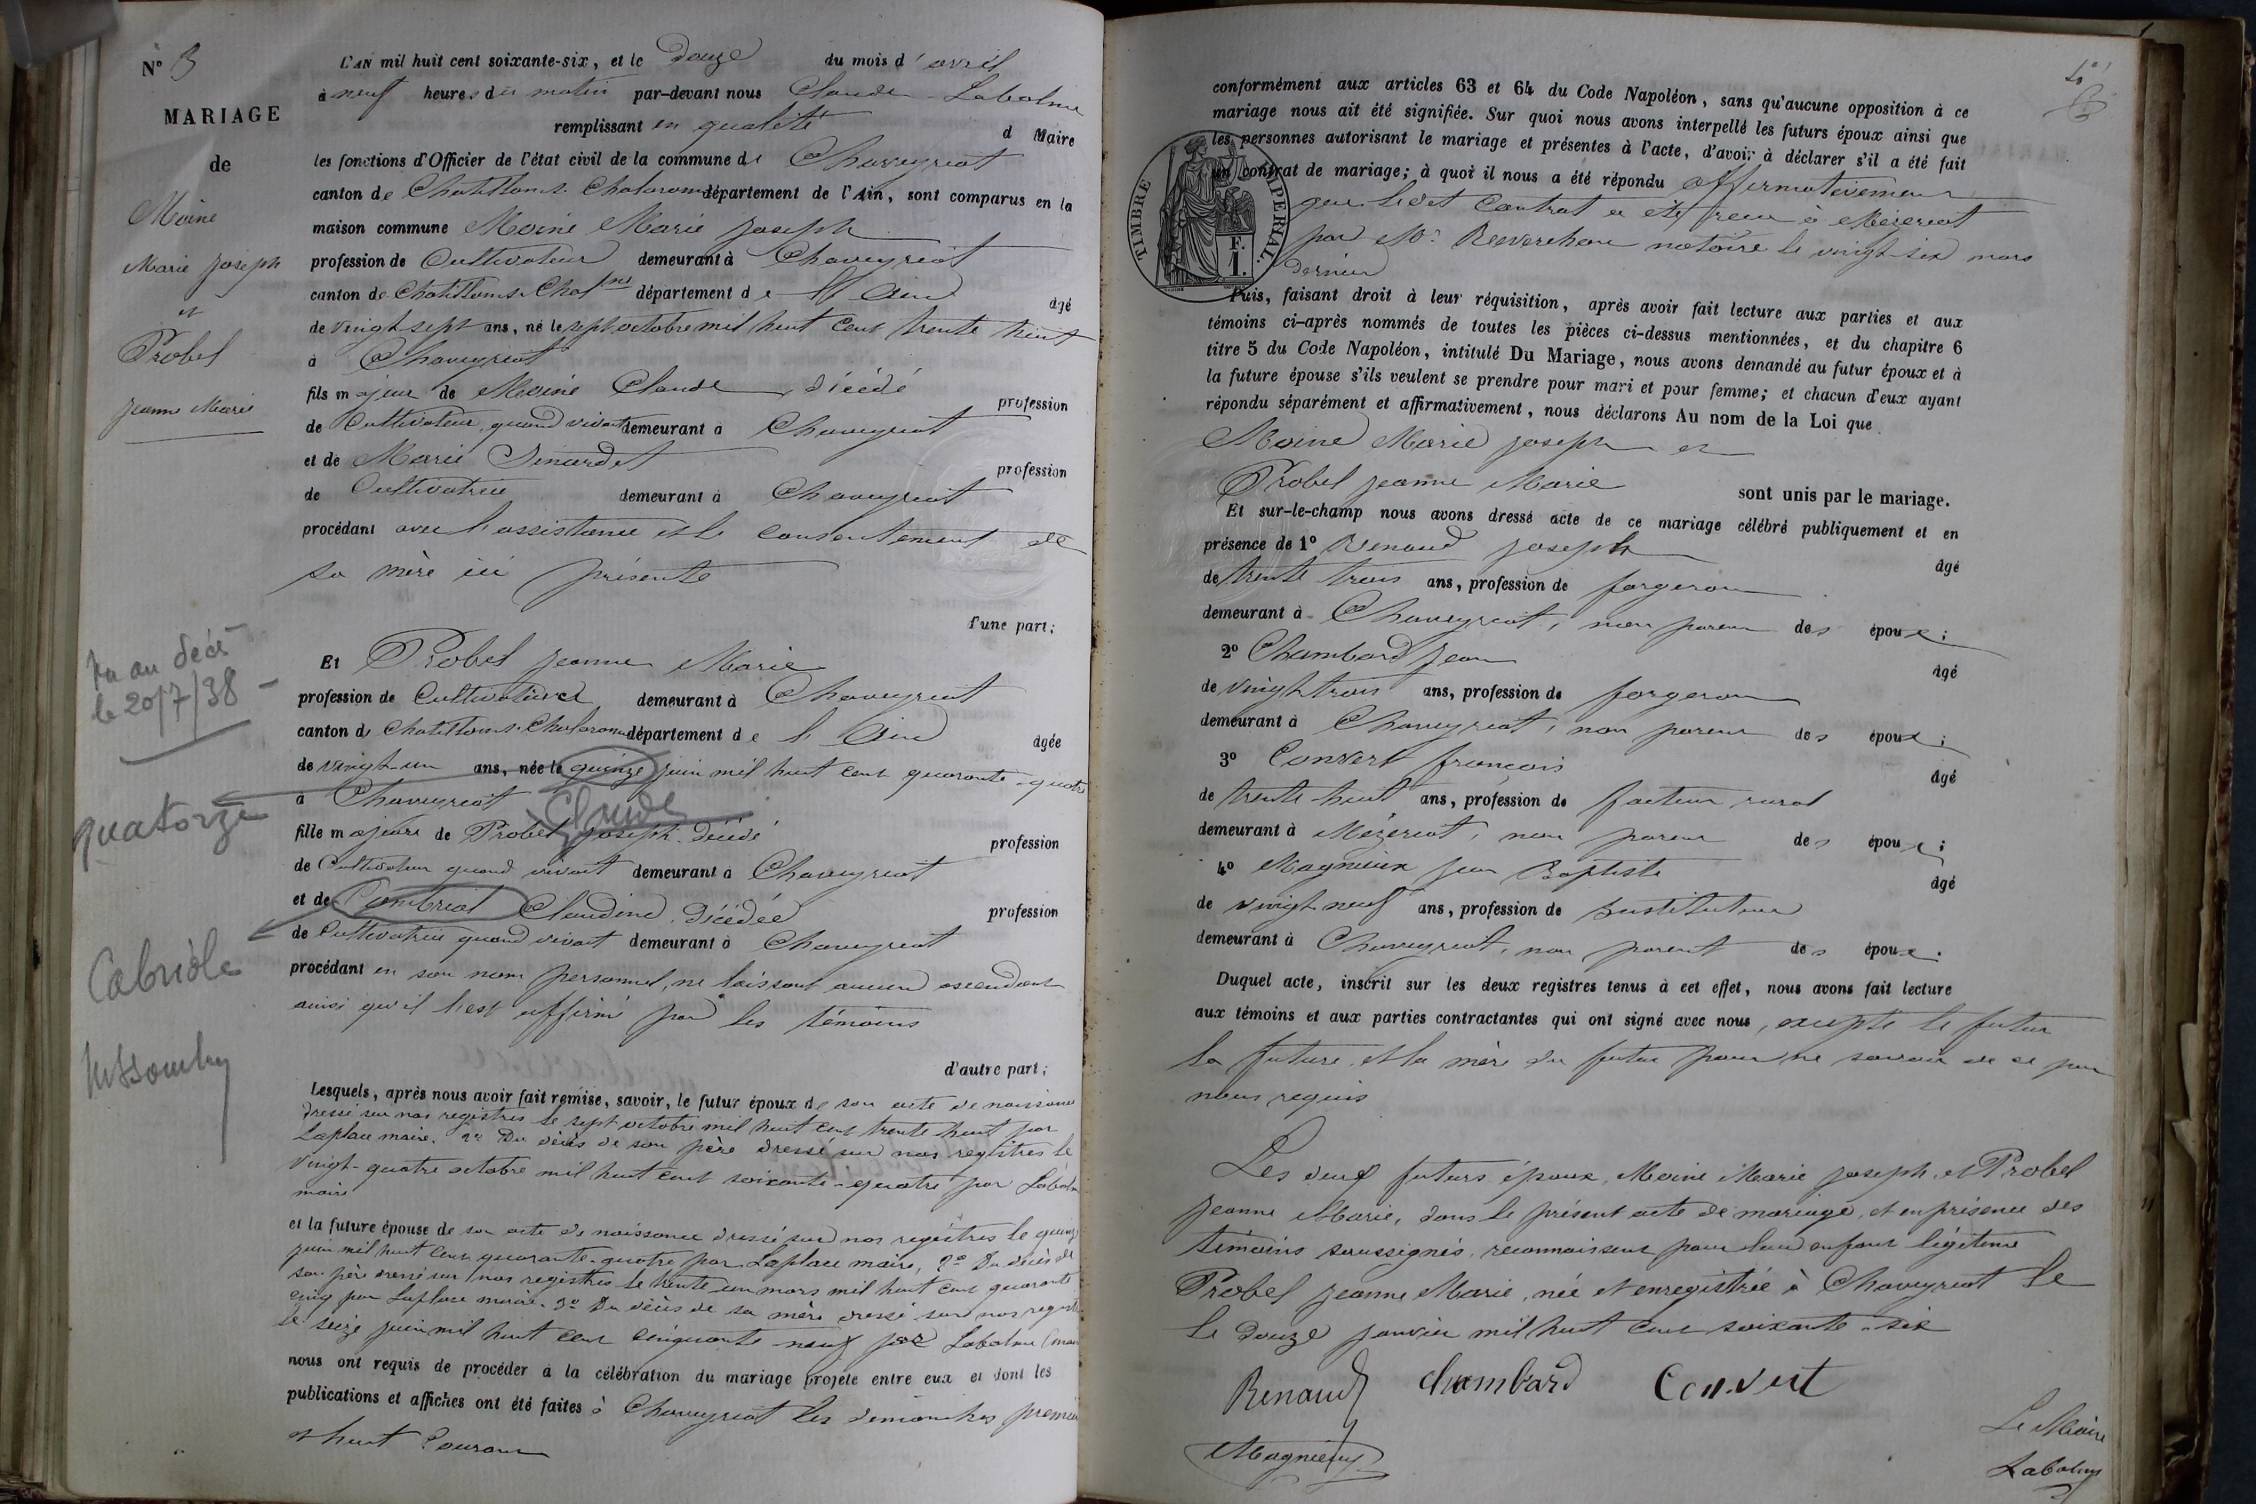 N° 3
MARIAGE
de
Moine
Marie Joseph
et
Probel
Jeanne Marie
Vu au décès
le 20/7/38 -
quatorze
Cabriole
L'AN mil huit cent soixante-six, et le douze du mois d'avril
à neuf heures du matin par-devant nous Claude Labalme
remplissant en qualité d Maire
les fonctions d'Officier de l'état civil de la commune de Chaveyriat
canton de Chatillon s. Chalaronne département de l'Ain, sont comparus en la
maison commune Moine Marie Joseph
profession de Cultivateur demeurant à Chaveyriat
canton de Chatillon s. Chal.ne département de l'Ain âgé
de vingt sept ans, né le sept octobre mil huit cent trente huit
à Chaveyriat
fils majeur de Moine Claude, décédé profession
de Cultivateur, quand vivait demeurant à Chaveyriat
et de Marie Sinardet profession
de Cultivatrice demeurant à Chaveyriat
procédant avec l'assistance et le consentement de
sa mère ici présente
d'une part;
Et Probel Jeanne Marie
profession de Cultivatrice demeurant à Chaveyriat
canton de Chatillon s. Chalaronne département de l'Ain âgée
de vingt-un ans, née le quinze juin mil huit cent quarante-quatre
à Chaveyriat Claude
fille majeure de Probel Joseph, décédé profession
de Cultivateur quand vivait demeurant à Chaveyriat
et de Combrial Claudine, décédée profession
de Cultivatrice quand vivait demeurant à Chaveyriat
procédant en son nom personnel, ne laissant aucun ascendant
ainsi qu'il l'est affirmé par les témoins
d'autre part;
Lesquels, après nous avoir fait remise, savoir, le futur époux de son acte de naissance
dressé sur nos registres le sept octobre mil huit cent trente huit par
Laplace maire. 2° Du décès de son père dressé sur nos registres le
vingt-quatre octobre mil huit cent soixante-quatre par Labalme
maire
et la future épouse de son acte de naissance dressé sur nos registres le quinze
juin mil huit cent quarante-quatre par Laplace maire, 2° Du décès de
son père dressé sur nos registres le trente un mars mil huit cent quarante
cinq par Laplace maire. 3° Du décès de sa mère dressé sur nos registres
le seize juin mil huit cent cinquante neuf par Labalme maire
nous ont requis de procéder à la célébration du mariage projeté entre eux et dont les
publications et affiches ont été faites à Chaveyriat les dimanches premier
et huit Courant
conformément aux articles 63 et 64 du Code Napoléon, sans qu'aucune opposition à ce
mariage nous ait été signifiée. Sur quoi nous avons interpellé les futurs époux ainsi que
les personnes autorisant le mariage et présentes à l'acte, d'avoir à déclarer s'il a été fait
un contrat de mariage; à quoi il nous a été répondu affirmativement
que ledit Contrat a été reçu à Mézériat
par Me Reverchon notaire le vingt-six mars
dernier
TIMBRE IMPERIAL.
1 F.
Puis, faisant droit à leur réquisition, après avoir fait lecture aux parties et aux
témoins ci-après nommés de toutes les pièces ci-dessus mentionnées, et du chapitre 6
titre 5 du Code Napoléon, intitulé Du Mariage, nous avons demandé au futur époux et à
la future épouse s'ils veulent se prendre pour mari et pour femme; et chacun d'eux ayant
répondu séparément et affirmativement, nous déclarons Au nom de la Loi que
Moine Marie Joseph et
Probel Jeanne Marie sont unis par le mariage.
Et sur-le-champ nous avons dressé acte de ce mariage célébré publiquement et en
présence de 1° Renaud Joseph âgé
de trente trois ans, profession de forgeron
demeurant à Chaveyriat, non parent des époux;
2° Chambard Jean âgé
de vingt trois ans, profession de forgeron
demeurant à Chaveyriat, non parent des époux;
3° Convert françois âgé
de trente huit ans, profession de facteur rural
demeurant à Mézériat, non parent des époux;
4° Magnieux Jean Baptiste âgé
de vingt neuf ans, profession de Instituteur
demeurant à Chaveyriat, non parent des époux.
Duquel acte, inscrit sur les deux registres tenus à cet effet, nous avons fait lecture
aux témoins et aux parties contractantes qui ont signé avec nous, excepté le futur
la future, et la mère du futur pour ne savoir de ce par
nous requis
Les deux futurs époux, Moine Marie Joseph, et Probel
Jeanne Marie, dans le présent acte de mariage, et en présence des
témoins soussignés, reconnaissent pour leur enfant légitime
Probel Jeanne Marie, née et enregistrée à Chaveyriat le
le douze janvier mil huit cent soixante-six
Renaud Chambard Convert
Magnieux
Le Maire
Labalme